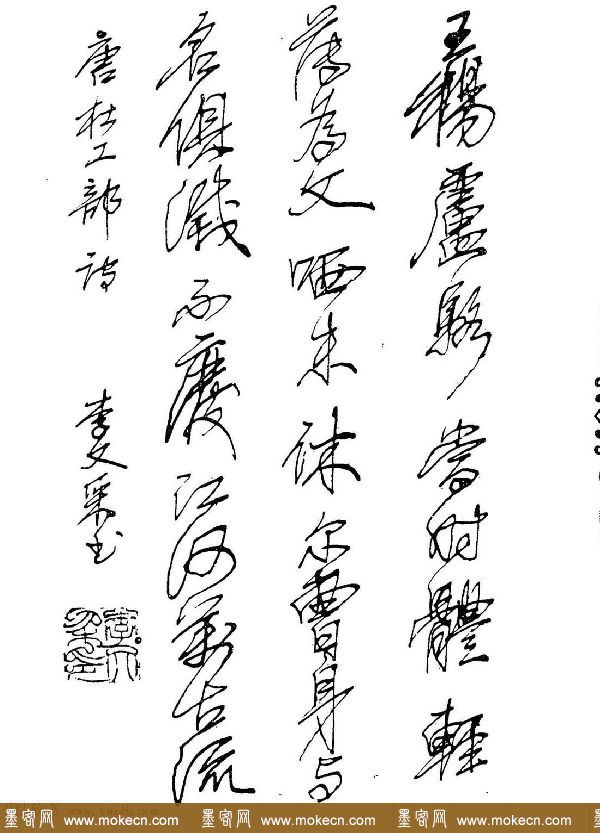 王楊盧駱當时體輕
薄為文哂未休尔曹身与
名俱滅不廢江河萬古流
唐杜工部诗 李文采书
墨客网 www.mokecn.com 墨客网 www.mokecn.com 墨客网 www.mokecn.com